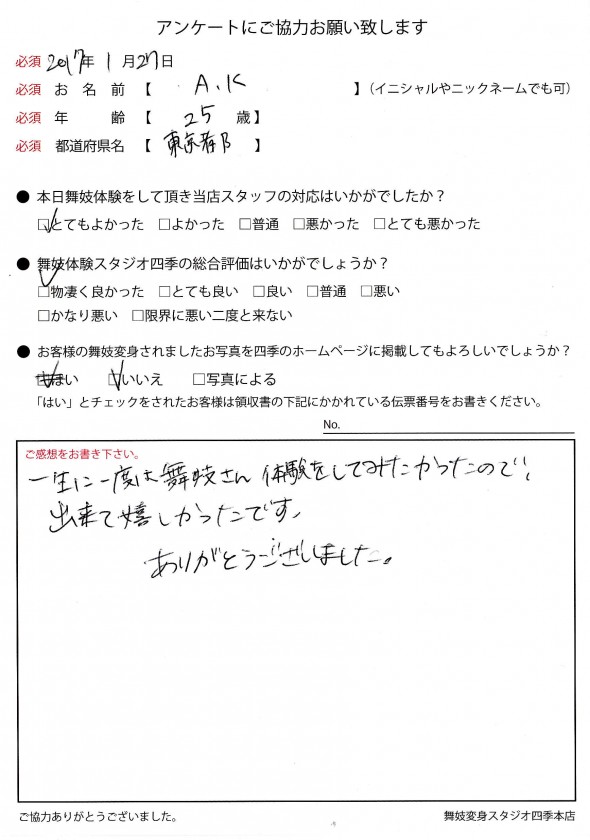 アンケートにご協力お願い致します
必須 2017年 1月27日
必須 お名前【 A.K 】(イニシャルやニックネームでも可)
必須 年齢【 25 歳】
必須 都道府県名【 東京都 】
● 本日舞妓体験をして頂き当店スタッフの対応はいかがでしたか?
☑とてもよかった □よかった □普通 □悪かった □とても悪かった
● 舞妓体験スタジオ四季の総合評価はいかがでしょうか?
☑物凄く良かった □とても良い □良い □普通 □悪い
□かなり悪い □限界に悪い二度と来ない
● お客様の舞妓変身されましたお写真を四季のホームページに掲載してもよろしいでしょうか?
はい ☑いいえ □写真による
「はい」とチェックをされたお客様は領収書の下記にかかれている伝票番号をお書きください。
No.
ご感想をお書き下さい。
一生に一度は舞妓さん体験をしてみたかったので、
出来て嬉しかったです。
ありがとうございました。
ご協力ありがとうございました。
舞妓変身スタジオ四季本店